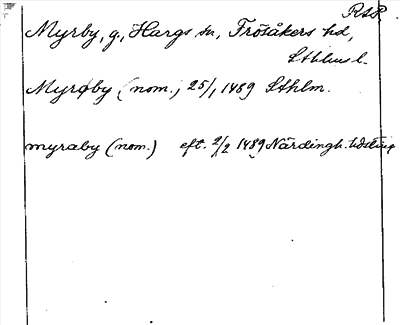 RAP
Myrby, g., Hargs sn, Frösåkers hd,
Sthlms l.
Myrøby (nom.) 25/1 1489 Sthlm.
myraby (nom.) eft. 2/2 1489 Närdingh. tidsting